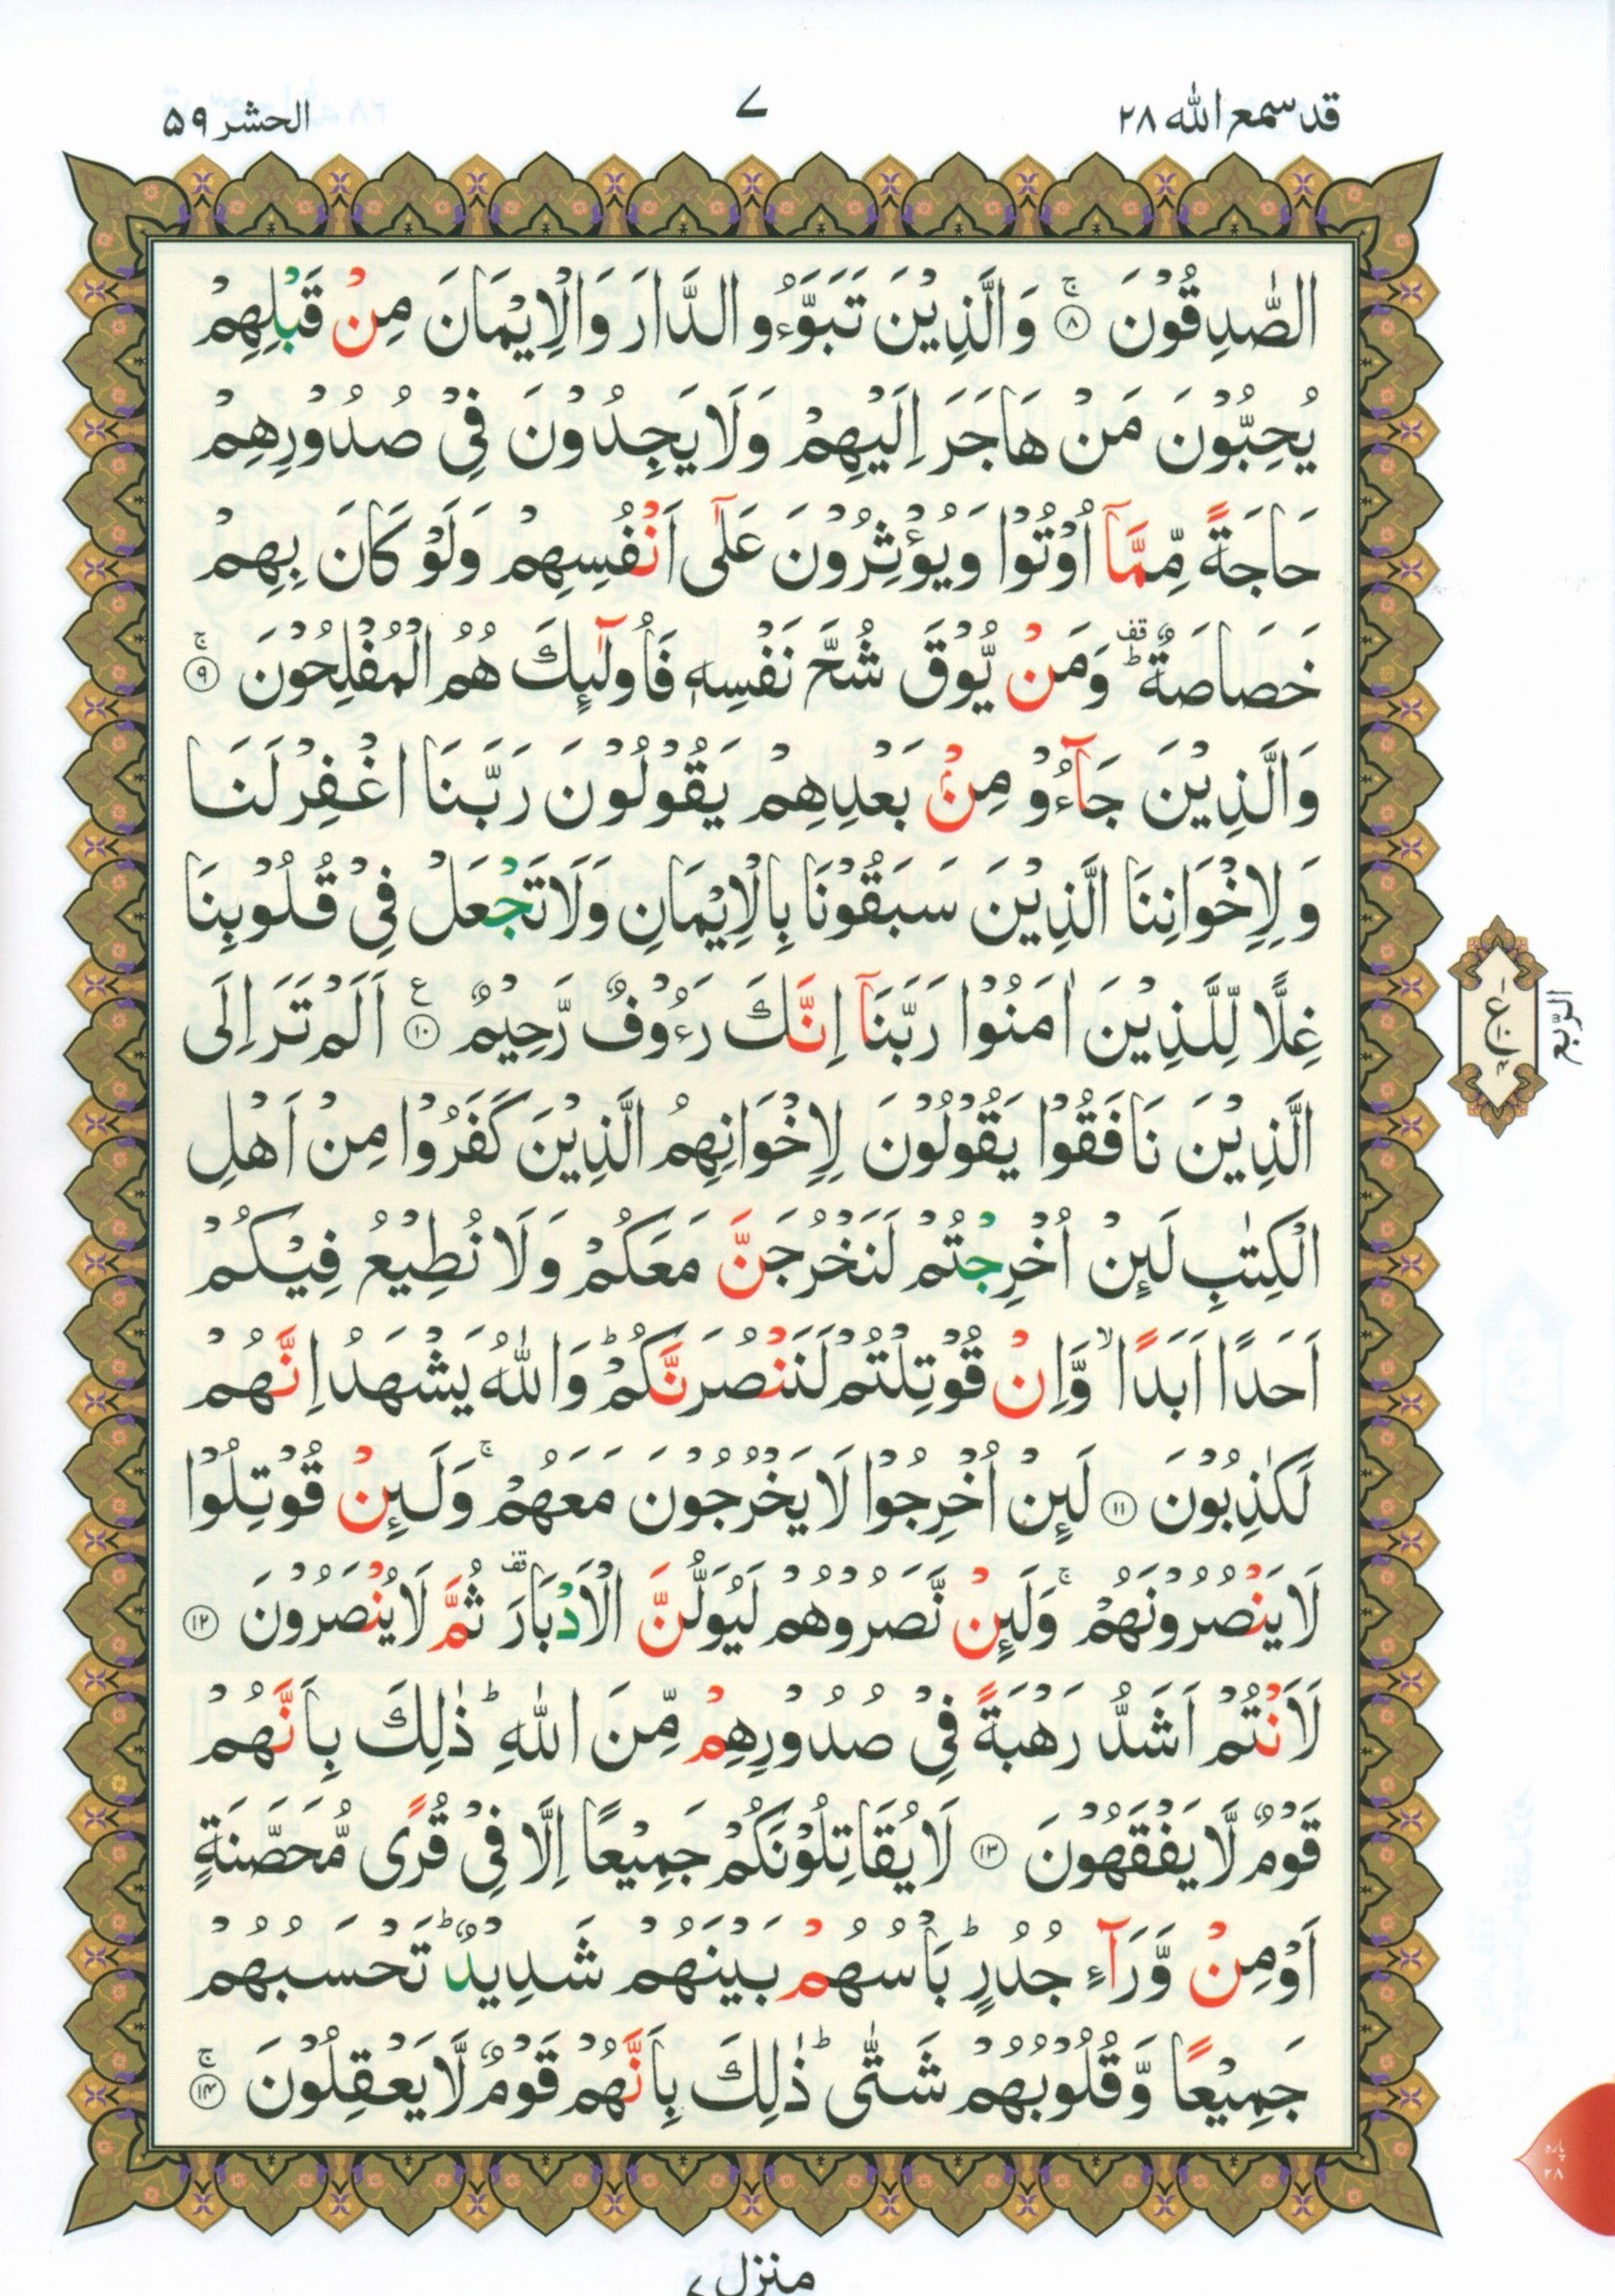 قد سمع الله ٢٨
٧
الحشر ٥٩
الصّٰدِقُوْنَ ۚ‏﴿۸﴾ وَالَّذِيْنَ تَبَوَّؤُ و الدَّارَ وَالْاِيْمَانَ مِنْ قَبْلِهِمْ
يُحِبُّوْنَ مَنْ هَاجَرَ اِلَيْهِمْ وَلَا يَجِدُوْنَ فِيْ صُدُوْرِهِمْ
حَاجَةً مِّمَّآ اُوْتُوْا وَيُؤْثِرُوْنَ عَلٰٓى اَنْفُسِهِمْ وَلَوْ كَانَ بِهِمْ
خَصَاصَةٌ ؕ۫ وَمَنْ يُّوْقَ شُحَّ نَفْسِهٖ فَاُولٰٓئِكَ هُمُ الْمُفْلِحُوْنَ ۚ﴿۹﴾
وَالَّذِيْنَ جَآءُوْ مِنْۢ بَعْدِهِمْ يَقُوْلُوْنَ رَبَّنَا اغْفِرْ لَنَا
وَلِاِخْوَانِنَا الَّذِيْنَ سَبَقُوْنَا بِالْاِيْمَانِ وَلَا تَجْعَلْ فِيْ قُلُوْبِنَا
غِلًّا لِّلَّذِيْنَ اٰمَنُوْا رَبَّنَآ اِنَّكَ رَءُوْفٌ رَّحِيْمٌ ﴿۱۰﴾ع اَلَمْ تَرَ اِلَى
الَّذِيْنَ نَافَقُوْا يَقُوْلُوْنَ لِاِخْوَانِهِمُ الَّذِيْنَ كَفَرُوْا مِنْ اَهْلِ
الْكِتٰبِ لَئِنْ اُخْرِجْتُمْ لَنَخْرُجَنَّ مَعَكُمْ وَلَا نُطِيْعُ فِيْكُمْ
اَحَدًا اَبَدًا ۙ وَّاِنْ قُوْتِلْتُمْ لَنَنْصُرَنَّكُمْ ؕ وَاللّٰهُ يَشْهَدُ اِنَّهُمْ
لَكٰذِبُوْنَ ﴿۱۱﴾ لَئِنْ اُخْرِجُوْا لَا يَخْرُجُوْنَ مَعَهُمْ ۚ وَلَئِنْ قُوْتِلُوْا
لَا يَنْصُرُوْنَهُمْ ۚ وَلَئِنْ نَّصَرُوْهُمْ لَيُوَلُّنَّ الْاَدْبَارَ ۫ ثُمَّ لَا يُنْصَرُوْنَ ﴿۱۲﴾
لَاَنْتُمْ اَشَدُّ رَهْبَةً فِيْ صُدُوْرِهِمْ مِّنَ اللّٰهِ ؕ ذٰلِكَ بِاَنَّهُمْ
قَوْمٌ لَّا يَفْقَهُوْنَ ﴿۱۳﴾ لَا يُقَاتِلُوْنَكُمْ جَمِيْعًا اِلَّا فِيْ قُرًى مُّحَصَّنَةٍ
اَوْ مِنْ وَّرَآءِ جُدُرٍ ؕ بَاْسُهُمْ بَيْنَهُمْ شَدِيْدٌ ؕ تَحْسَبُهُمْ
جَمِيْعًا وَّقُلُوْبُهُمْ شَتّٰى ؕ ذٰلِكَ بِاَنَّهُمْ قَوْمٌ لَّا يَعْقِلُوْنَ ۚ﴿۱۴﴾
الرّبع
پاره
٢٨
منزل ٧